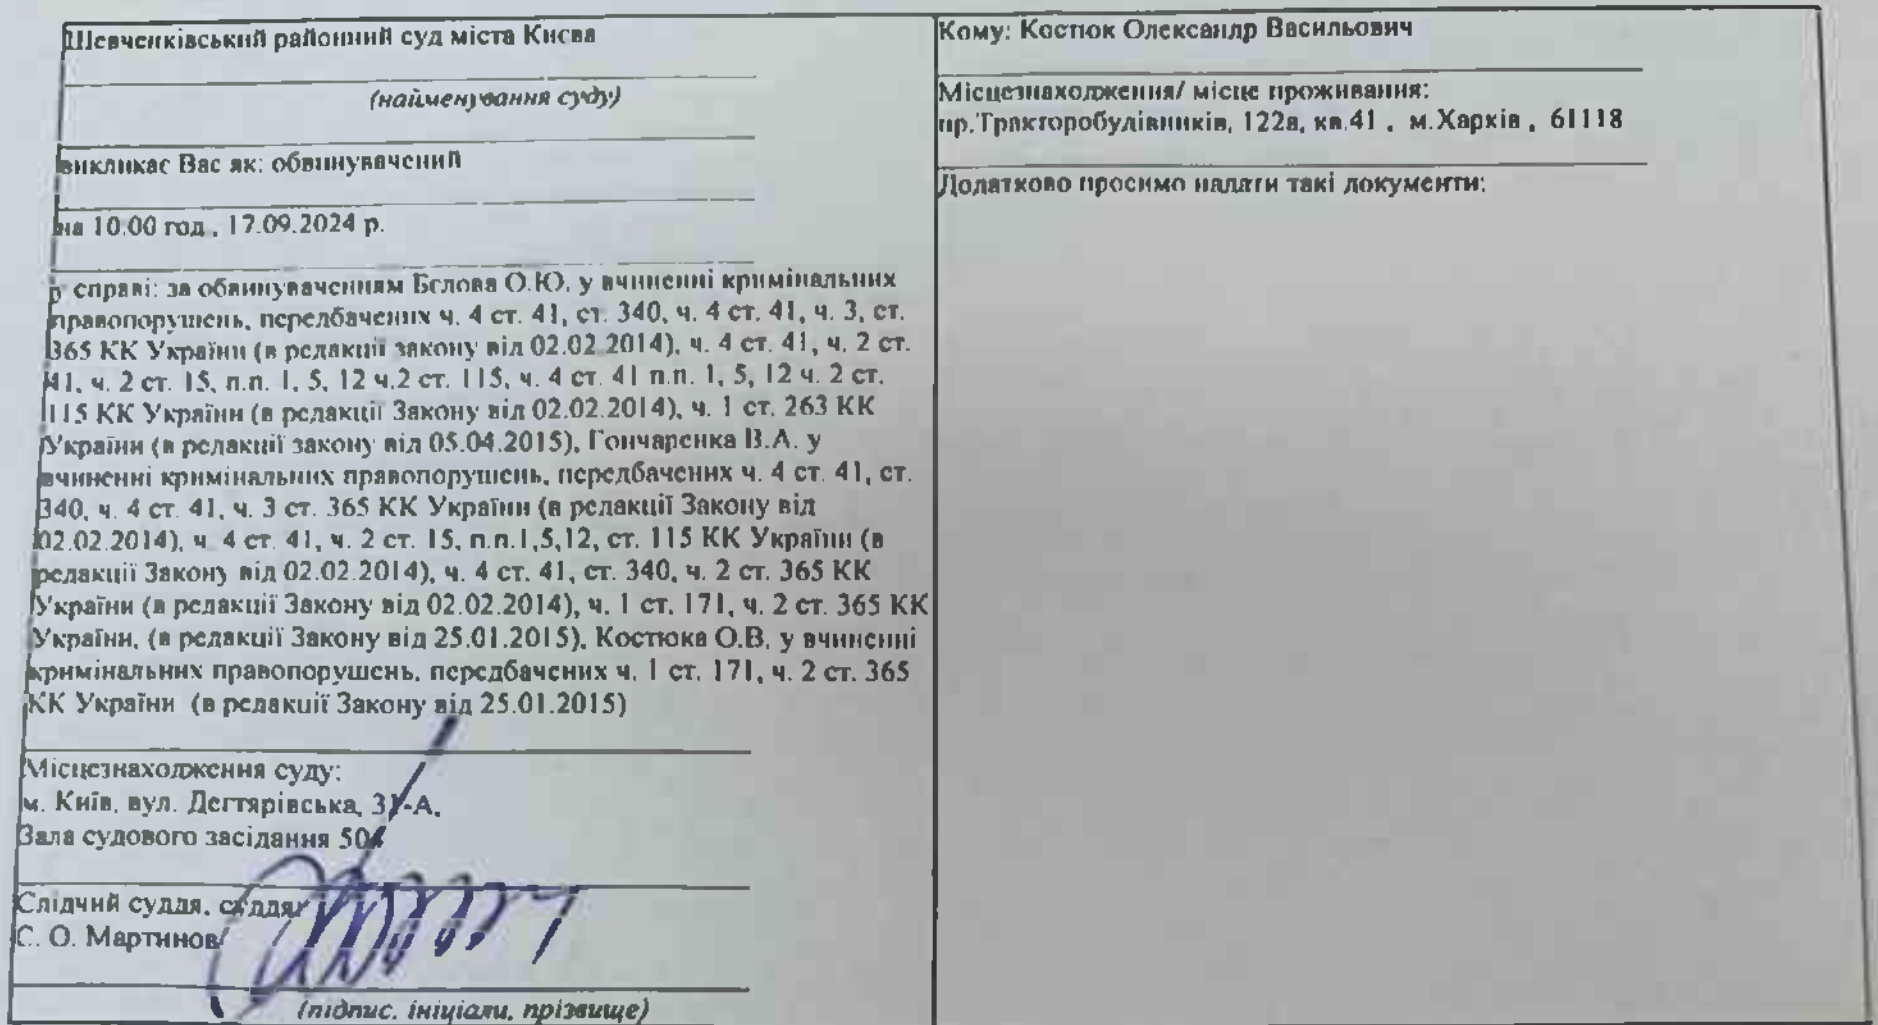 Шевченківський районний суд міста Києва
(найменування суду)
викликає Вас як: обвинувачений
на 10.00 год , 17.09.2024 р.
у справі: за обвинуваченням Бєлова О.Ю. у вчиненні кримінальних
правопорушень, передбачених ч. 4 ст. 41, ст. 340, ч. 4 ст. 41, ч. 3, ст.
365 КК України (в редакції закону від 02.02.2014), ч. 4 ст. 41, ч. 2 ст.
41, ч. 2 ст. 15, п.п. 1, 5, 12 ч.2 ст. 115, ч. 4 ст. 41 п.п. 1, 5, 12 ч. 2 ст.
115 КК України (в редакції Закону від 02.02.2014), ч. 1 ст. 263 КК
України (в редакції закону від 05.04.2015), Гончаренка В.А. у
вчиненні кримінальних правопорушень, передбачених ч. 4 ст. 41, ст.
340, ч. 4 ст. 41, ч. 3 ст. 365 КК України (в редакції Закону від
02.02.2014), ч. 4 ст. 41, ч. 2 ст. 15, п.п.1,5,12, ст. 115 КК України (в
редакції Закону від 02.02.2014), ч. 4 ст. 41, ст. 340, ч. 2 ст. 365 КК
України (в редакції Закону від 02.02.2014), ч. 1 ст. 171, ч. 2 ст. 365 КК
України, (в редакції Закону від 25.01.2015), Костюка О.В. у вчиненні
кримінальних правопорушень, передбачених ч. 1 ст. 171, ч. 2 ст. 365
КК України (в редакції Закону від 25.01.2015)
Місцезнаходження суду:
м. Київ, вул. Дегтярівська, 31-А,
Зала судового засідання
Слідчий суддя, суддя
С. О. Мартинов
(підпис, ініціали, прізвище)
Кому: Костюк Олександр Васильович
Місцезнаходження/ місце проживання:
пр.Тракторобудівників, 122в, кв.41 , м.Харків , 61118
Додатково просимо надати такі документи: